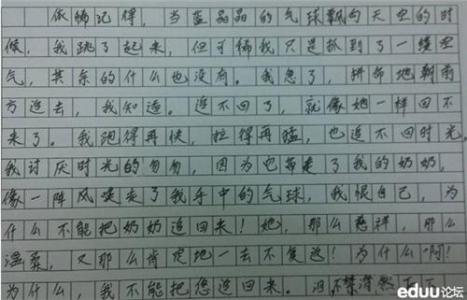 依稀记得，当蓝晶晶的气球飘向天空的时
候，我跳了起来，但可偏我只是抓到了一缕空
气，其余的什么也没有。我急了，拼命地朝前
方追去，我知道。追不回了，就像她一样回不
来了。我跑得再快，拉得再猛，也追不回时光，
我讨厌时光的匆匆，因为它带走了我的奶奶，
像一阵风卷走了我手中的气球，我恨自己，为
什么不能把奶奶追回来！她，那么慈祥，那么
温柔，又那么肯定地一去不复返！为什么啊！
为什么，我不能把您追回来。泪不禁潸然而下。
eduu论坛